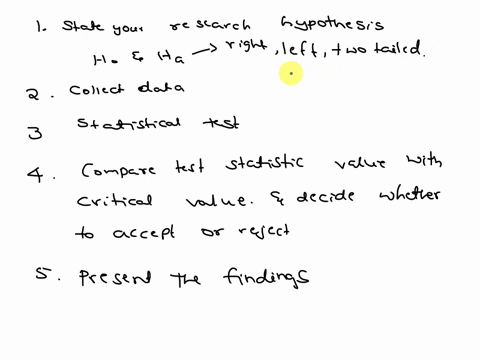 1. State your research hypothesis
H₀ & Ha → right, left, two tailed.
2. Collect data
3 Statistical test
4. Compare test statistic value with
critical value. & decide whether
to accept or reject
5. Present the findings